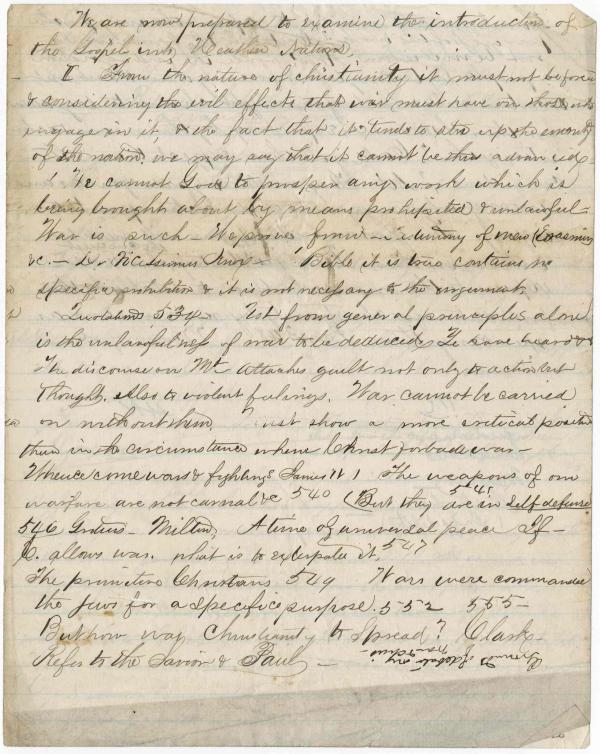 We are now prepared to examine the introduction of
the Gospel into Heathen Nations.
I From the nature of christianity it must not be forced
& considering the evil effects that war must have on those who
engage in it, & the fact that it tends to stir up the enmity
of the nation. we may say that it cannot be thus advanced.
! We cannot God to prosper any work which is
being brought about by means prohibited & unlawful-
War is such - We prove from - testimony of men (Erasmus
&c. - Dr Vicessimus Knox - Bible it is true contains no
specific prohibition & it is not necessary to the argument
534 Not from general principles alone
is the unlawfulness of war to be deduced. Ye have heard &c
The discourse on Mt. attaches guilt not only to action but
thought. Also to violent feelings. War cannot be carried
on without them. Just show a more critical position
than in the circumstance where Christ forbade war -
Whence come wars & fightings James IV 1 The weapons of our
warfare are not carnal &c 540 (But they are in self defense
541
546 Grotius - Milton, A time of universal peace If -
C. allows war. what is to extirpate it. 547
The primitive Christians 549 Wars were commanded
the Jews for a specific purpose. 552 555-
But how was Christianity to spread? Clark-
Refer to the Savior & Paul -